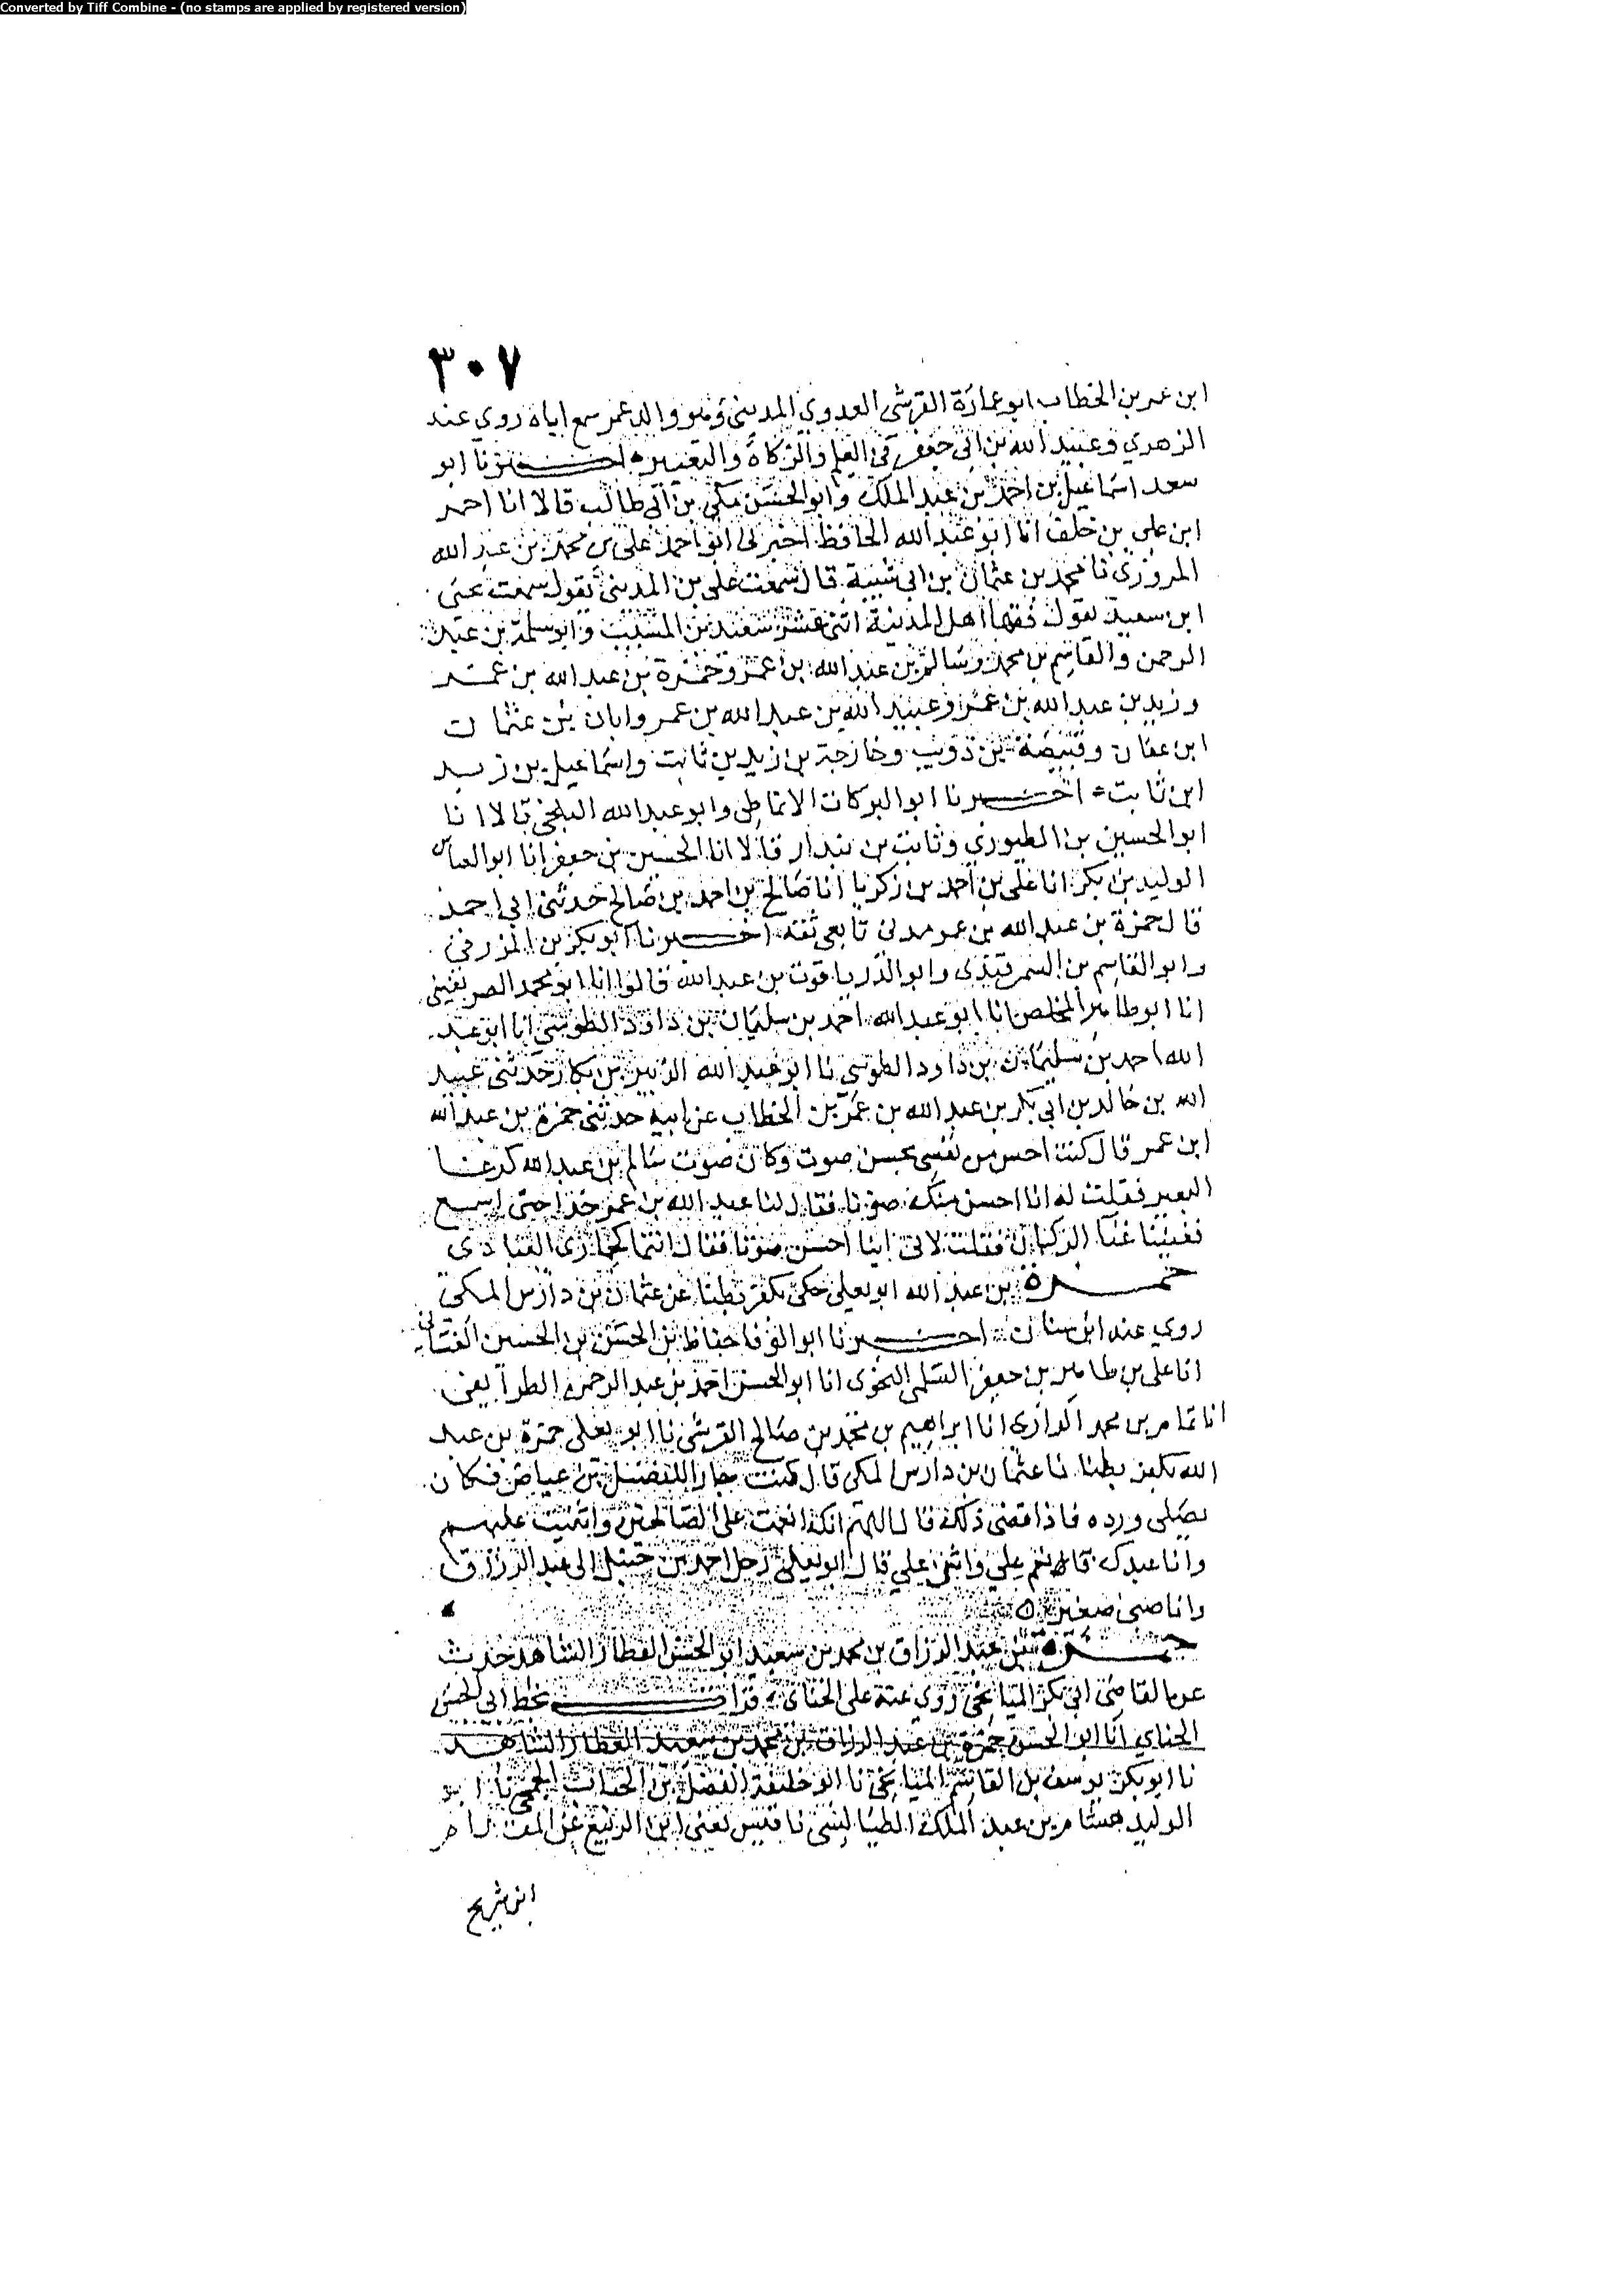 Converted by Tiff Combine - (no stamps are applied by registered version)
٣٠٧
ابن عمر بن الخطاب ابو عمارة القرشي العدوي المديني وهو والد عمر سمع اباه روي عنه
الزهري وعبيد الله بن ابي جعفر في العلم والزكاة والتعبير اخبرنا ابو
سعد اسماعيل بن احمد بن عبد الملك وابو الحسن مكي بن ابي طالب قالا انا احمد
ابن علي بن خلف انا ابو عبد الله الحافظ اخبرني ابو احمد علي بن محمد بن عبد الله
المروزي نا محمد بن عثمان بن ابي شيبة قال سمعت علي بن المديني يقول سمعت يحيى
ابن سعيد يقول فقها اهل المدينة اثنى عشر سعيد بن المسيب وابو سلمة بن عبد
الرحمن والقاسم بن محمد وسالم بن عبد الله بن عمر وحمزة بن عبد الله بن عمر
وزيد بن عبد الله بن عمر وعبيد الله بن عبد الله بن عمر وابان بن عثمان
ابن عفان وقبيصة بن ذويب وخارجة بن زيد بن ثابت واسماعيل بن زيد
ابن ثابت اخبرنا ابو البركات الانماطي وابو عبد الله البلخي قالا انا
ابو الحسين بن الطيوري وثابت بن بندار قالا انا الحسين بن جعفر انا ابو العباس
الوليد بن بكر انا علي بن احمد بن زكريا انا صالح بن احمد بن صالح حدثني ابي احمد
قال حمزة بن عبد الله بن عمر مدني تابعي ثقة اخبرنا ابو بكر بن المزرفي
وابو القاسم بن السمرقندي وابو الدر ياقوت بن عبد الله قالوا انا ابو محمد الصريفيني
انا ابو طاهر المخلص انا ابو عبد الله احمد بن سليمان بن داود الطوسي انا ابو عبد
الله احمد بن سليمان بن داود الطوسي نا ابو عبد الله الزبير بن بكار حدثني عبيد
الله بن خالد بن ابي بكر بن عبد الله بن عمر بن الخطاب عن ابيه حدثني حمزة بن عبد الله
ابن عمر قال كنت احس من نفسي بحسن صوت وكان صوت سالم بن عبد الله كرغا
البعير فقلت له انا احسن منك صوتا فقال لنا عبد الله بن عمر خذا حتى اسمع
فغنينا غنا الركبان فقلت لابي اينا احسن صوتا فقال انتما كحماري العبادي
حمزة بن عبد الله ابو يعلى حكى بكفر بطنا عن عثمان بن دارس المكي
روي عنه ابن سنان اخبرنا ابو الوفا حفاظ بن الحسن بن الحسين الغساني
انا علي بن طاهر بن جعفر السلمي النحوي انا ابو الحسن احمد بن عبد الرحمن الطرايفي
انا تمام بن محمد الرازي انا ابراهيم بن محمد بن صالح القرشي نا ابو يعلى حمزة بن عبد
الله بكفر بطنا نا عثمان بن دارس المكي قال كنت جارا للفضيل بن عياض فكان
يصلي ورده فاذا قضى ذلك قال اللهم انك انعمت على الصالحين واثنيت عليهم
وانا عبدك فانعم علي واثن علي قال ابو يعلى رحل احمد بن حنبل الى عبد الرزاق
وانا صبي صغير
حمزة بن عبد الرزاق بن محمد بن سعيد ابو الحسن العطار الشاهد حدث
عن القاضي ابي بكر الميانجي روي عنه علي الحناي قرات بخط ابي الحسن
الحناي انا ابو الحسن حمزة بن عبد الرزاق بن محمد بن سعيد العطار الشاهد
نا ابو بكر يوسف بن القاسم الميانجي نا ابو خليفة الفضل بن الحباب الجمحي نا ابو
الوليد هشام بن عبد الملك الطيالسي نا قيس يعني ابن الربيع عن المقدام
ابن شريح